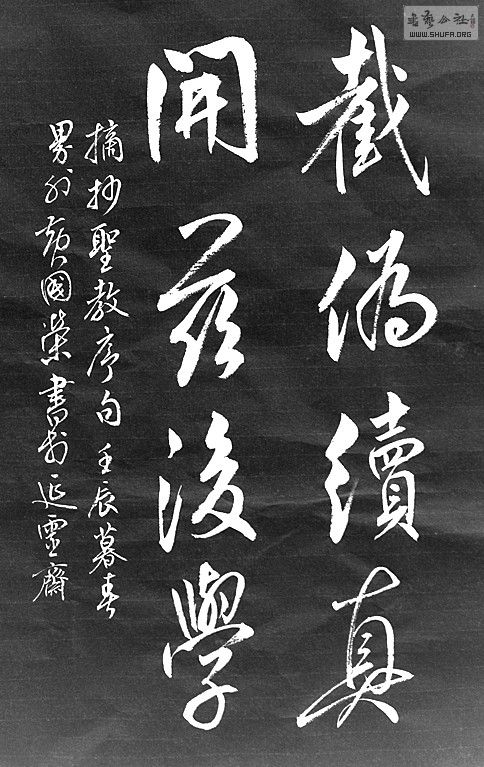 截偽續真
開茲後學
摘抄聖教序句 壬辰暮春
界外黃國榮書於延靈齋
書藝公社
WWW.SHUFA.ORG